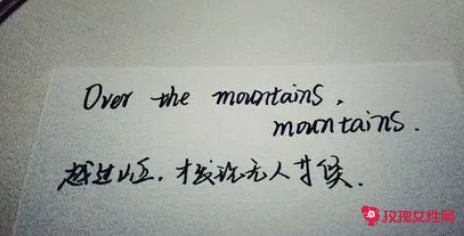 Over the mountains,
mountains.
越过山丘，才发现无人等候．
玫瑰女性网